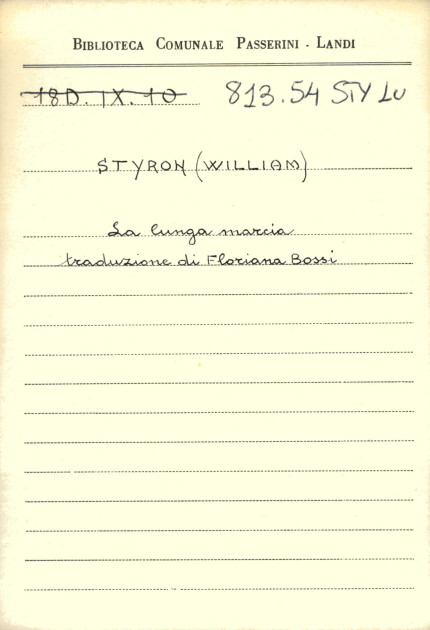 BIBLIOTECA COMUNALE PASSERINI - LANDI
18D. IX. 10 813.54 STY LU
STYRON (WILLIAM)
La lunga marcia
traduzione di Floriana Bossi